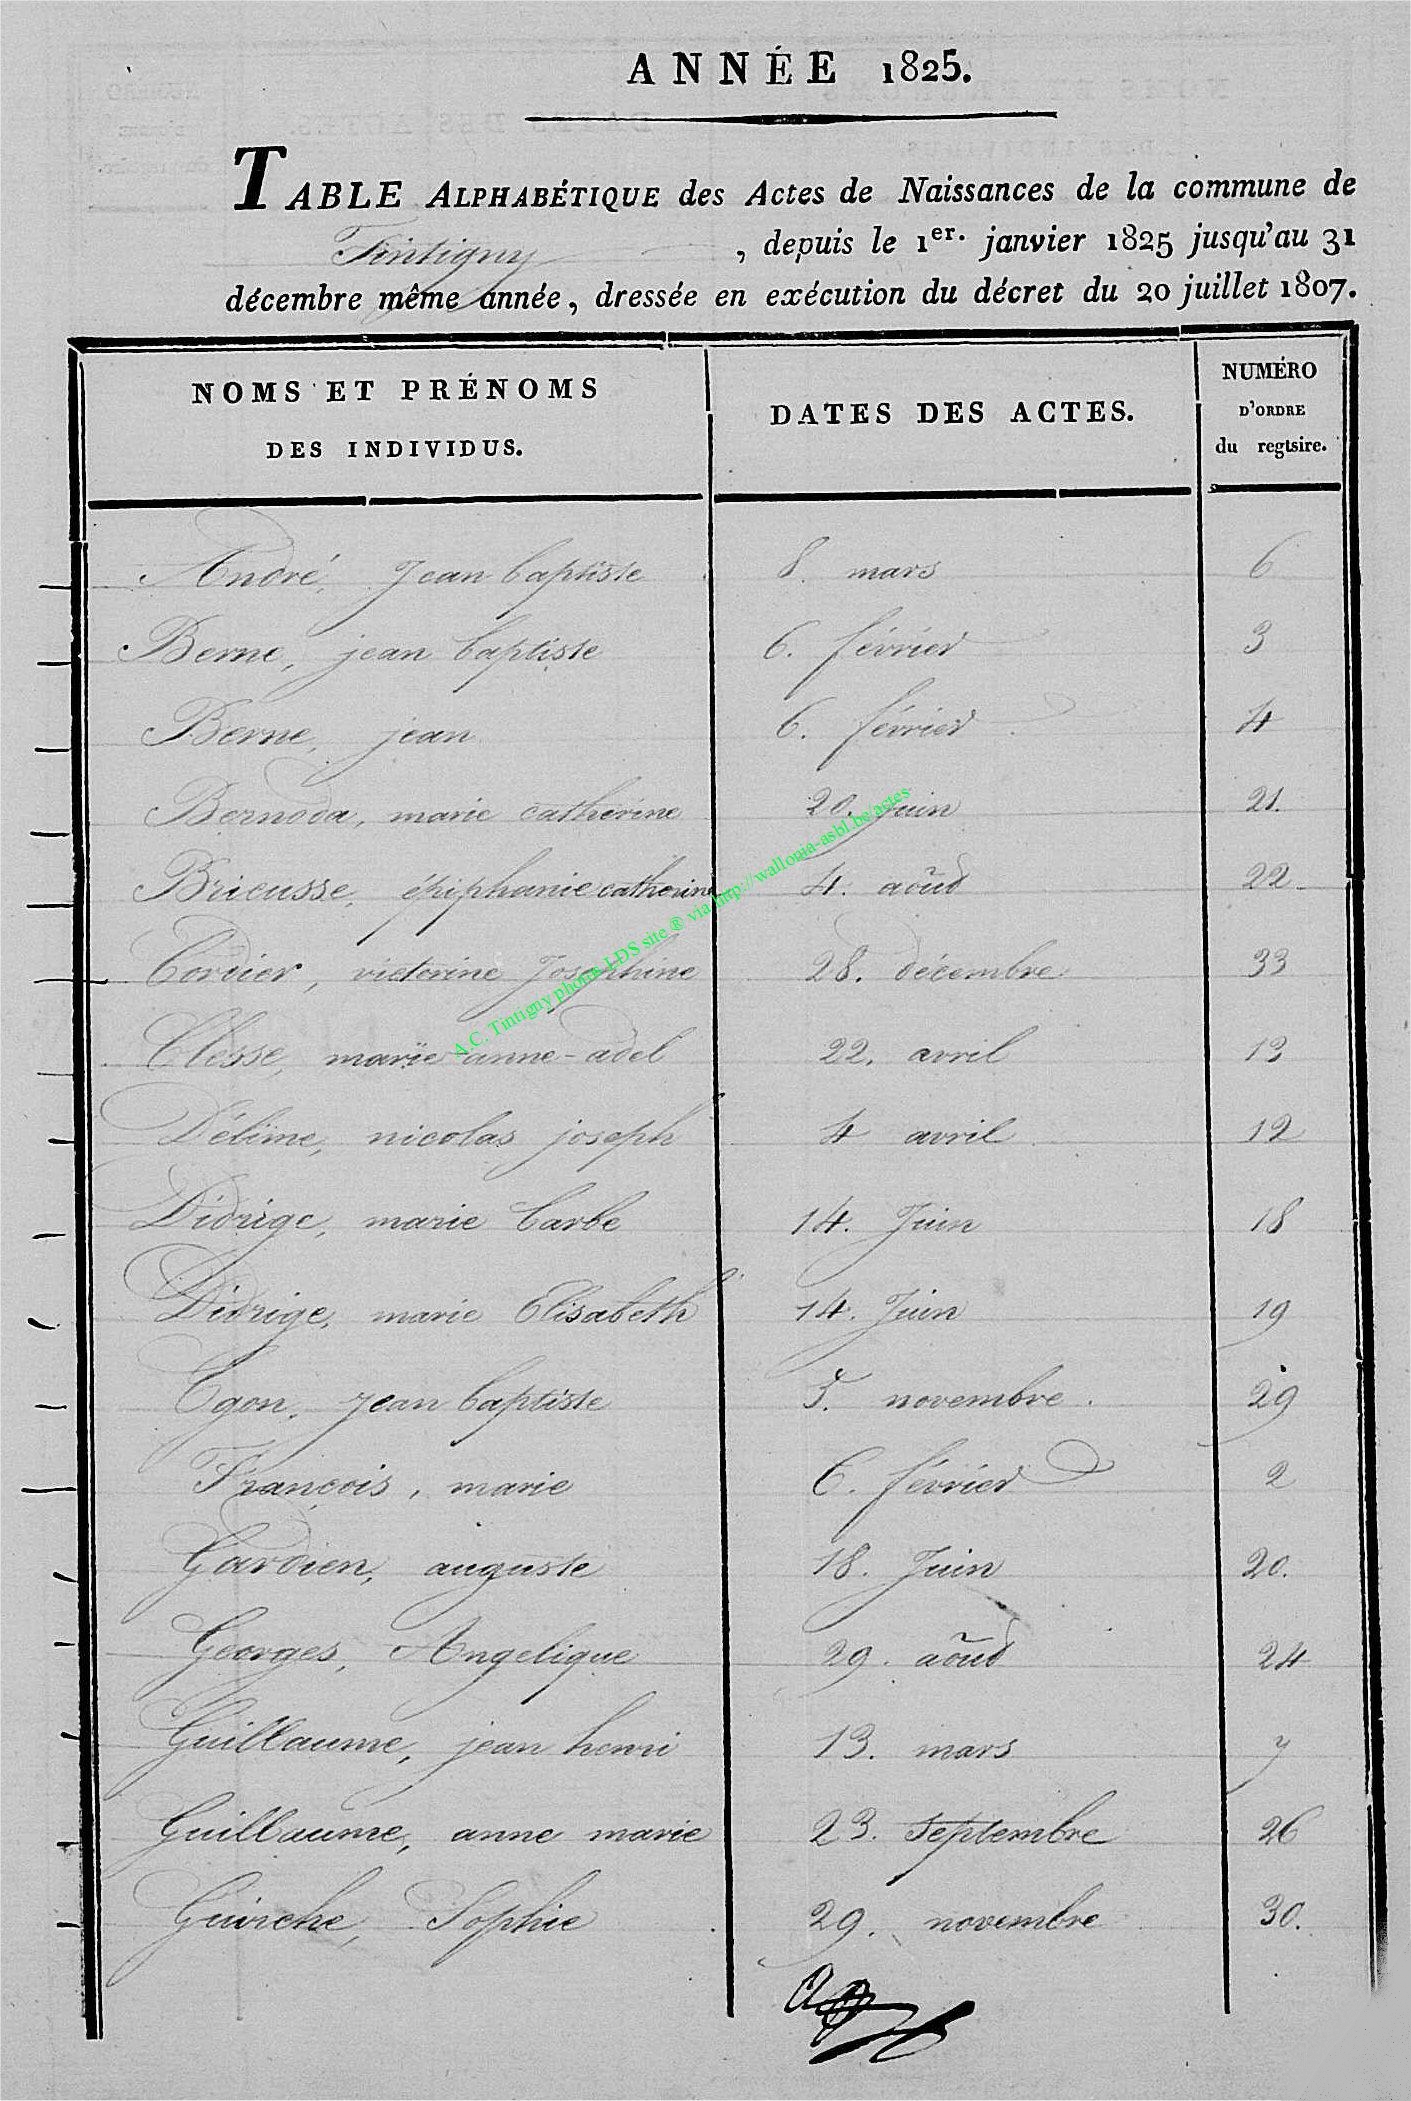 ANNÉE 1825.
TABLE ALPHABÉTIQUE des Actes de Naissances de la commune de
Tintigny , depuis le 1er. janvier 1825 jusqu'au 31
décembre même année, dressée en exécution du décret du 20 juillet 1807.
NOMS ET PRÉNOMS DES INDIVIDUS. DATES DES ACTES. NUMÉRO D'ORDRE du regtsire.
André, Jean baptiste 8. mars 6
Berne, jean baptiste 6. février 3
Berne, jean 6. février 4
Bernoda, marie catherine 20. Juin 21.
Bricusse, épiphanie catherine 4. aoûd 22
Cordier, victorine Josephine 28. décembre 33
Clesse, marie anne-adel 22. avril 13
Délime, nicolas joseph 4 avril 12
Didrige, marie barbe 14. Juin 18
Didrige, marie Elisabeth 14. Juin 19
Egon, Jean baptiste 5. novembre. 29
François, marie 6. février 2
Gardien, auguste 18. Juin 20.
Georges, Angelique 29. aoûd 24
Guillaume, jean henri 13. mars 7
Guillaume, anne marie 23. Septembre 26
Guirche, Sophie 29. novembre 30.
A.C. Tintigny photos LDS site ® via http://wallonia-asbl.be/actes